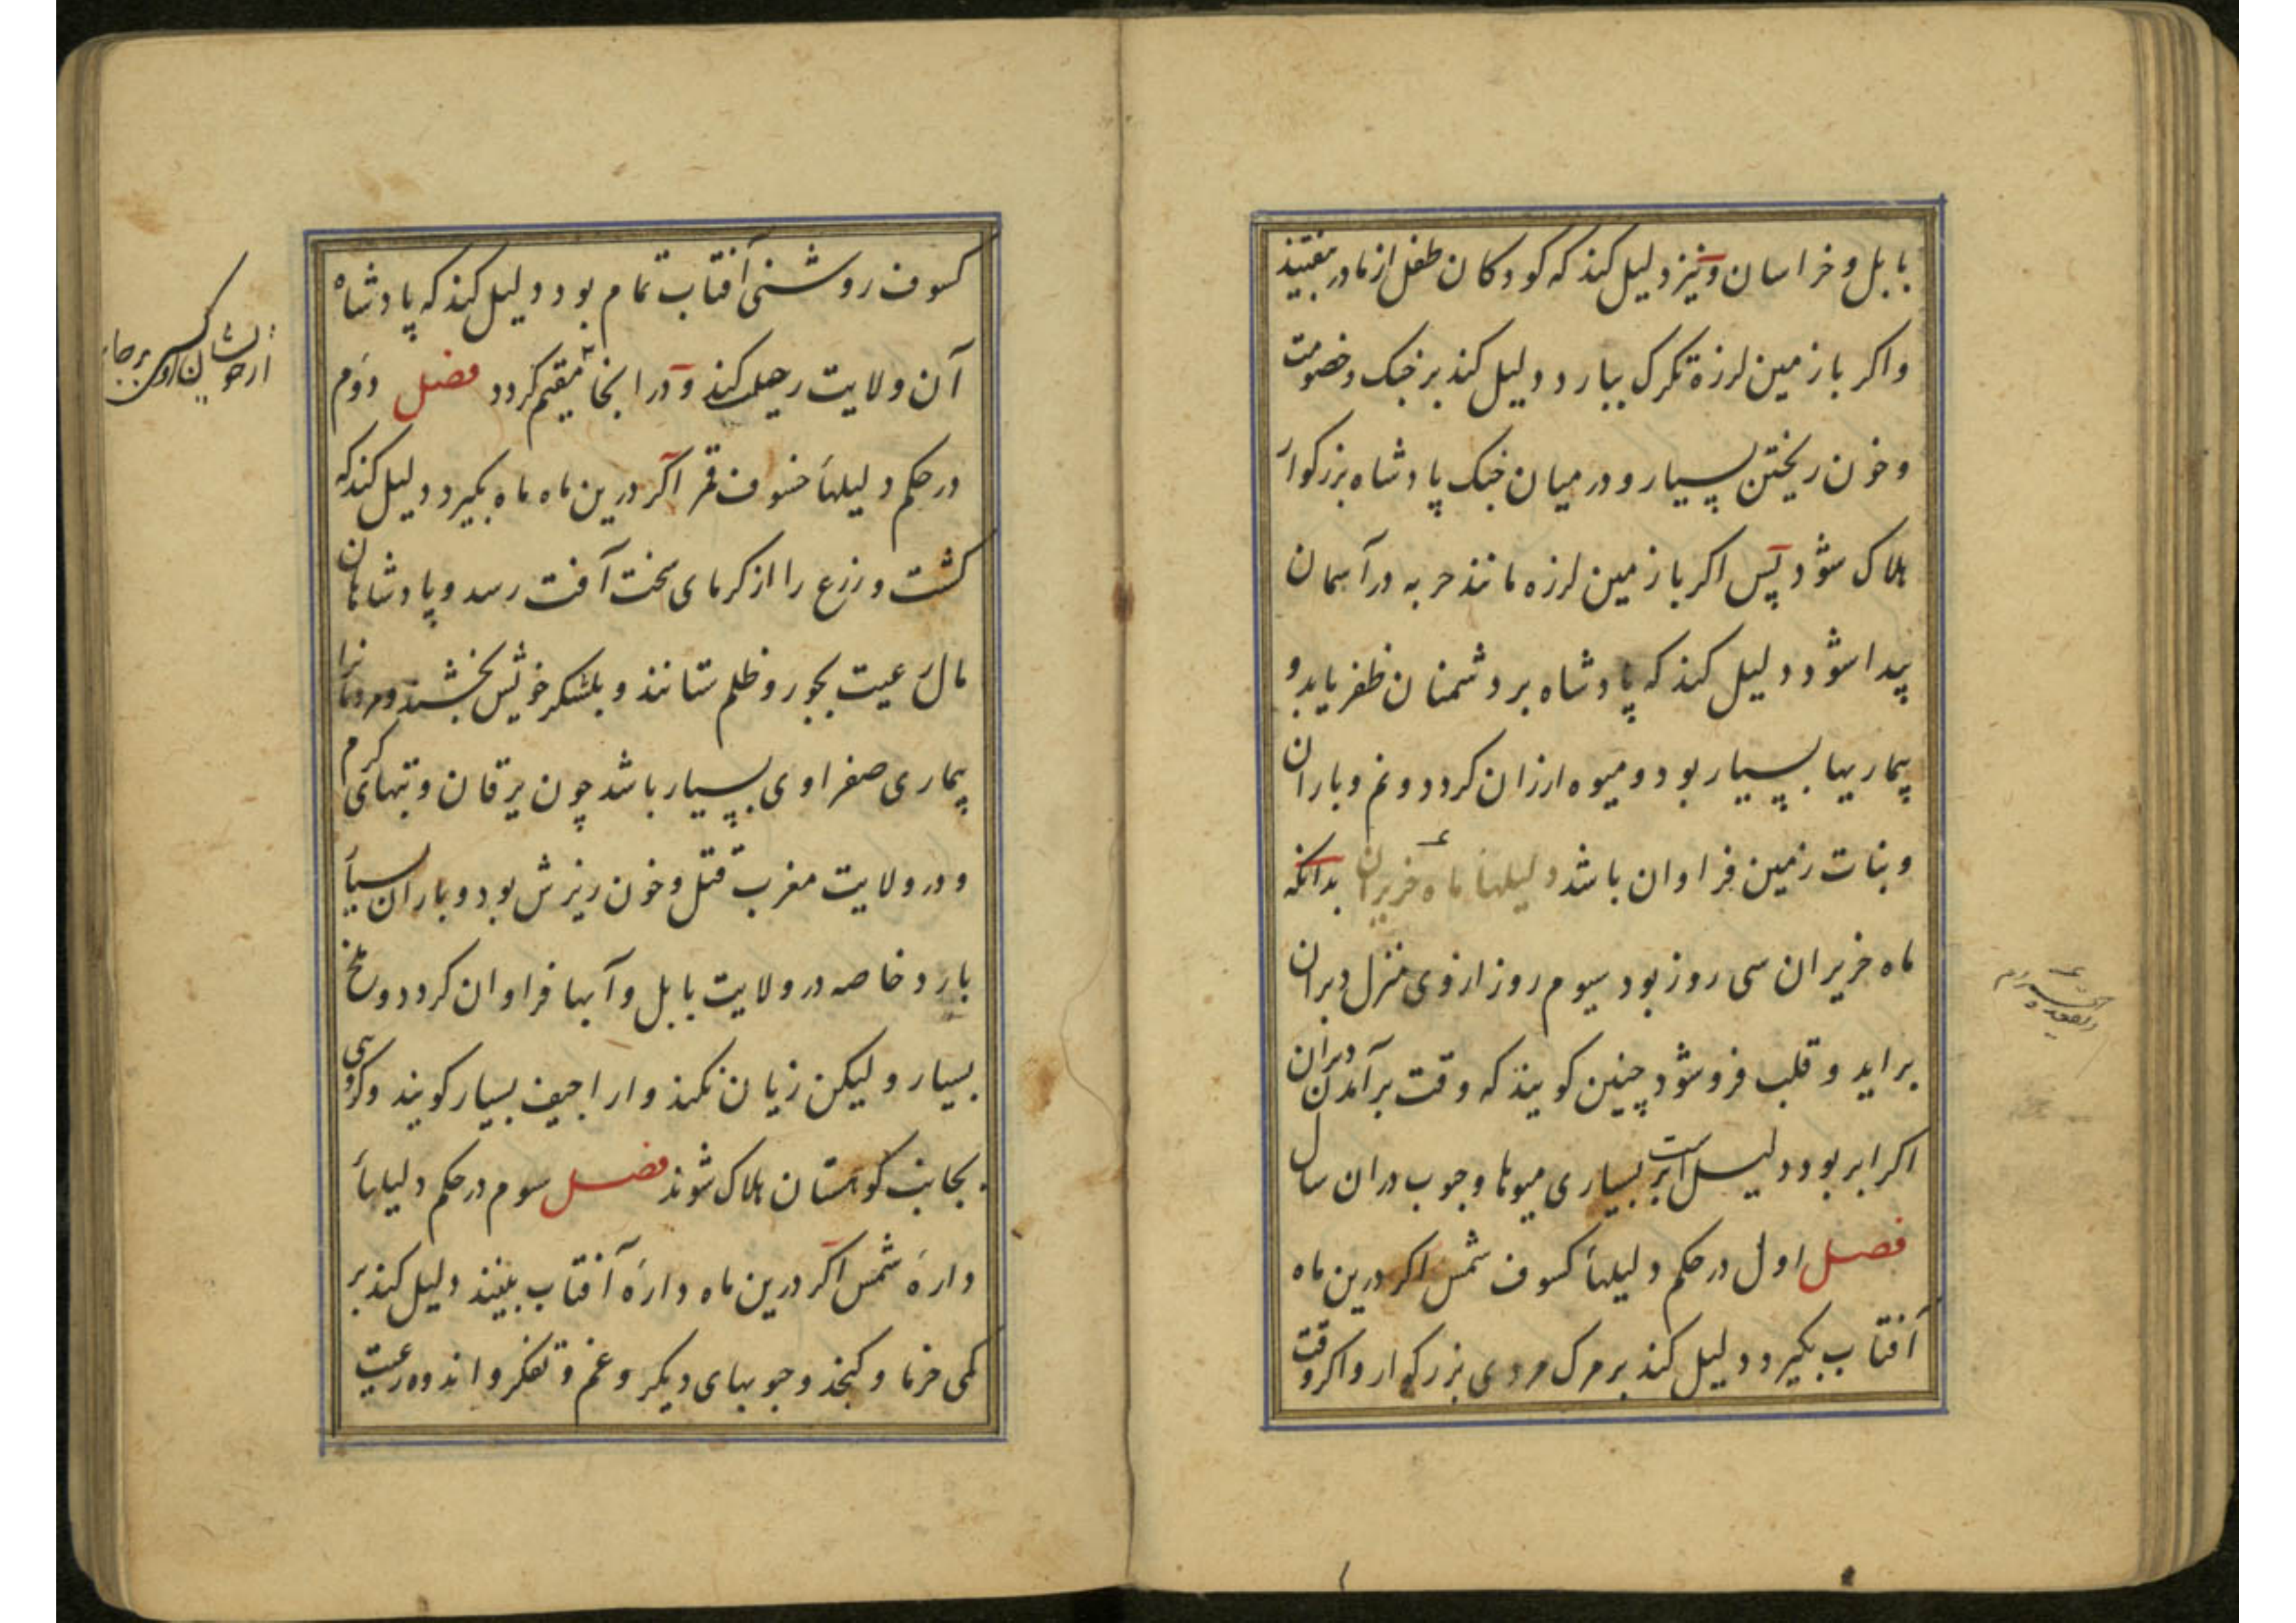 بابل و خراسان و نیز دلیل کند که کودکان طفل از مادر بیفتند
واکر با زمین لرزه تکرک ببارد دلیل کند بر جنک و خصومت
و خون ریختن بسیار و در میان جنک پادشاه بزرکوار
هلاک شود پس اکر با زمین لرزه مانند حربه در آسمان
پیدا شود دلیل کند که پادشاه بر دشمنان ظفر یابد و
بیماریها بسیار بود و میوه ارزان کردد و نم و باران
و نبات زمین فراوان باشد دلیلهاء ماه حزیران بدانکه
ماه حزیران سی روز بود سیوم روز ازوی منزل دبران
براید و قلب فروشود چنین کویند که وقت برآمدن دبران
اکر ابر بود دلیل است بر بسیاری میوها و حبوب دران سال
فصل اول در حکم دلیلهاء کسوف شمس اکر درین ماه
آفتاب بکیرد دلیل کند بر مرک مردی بزرکوار واکر وقت
کسوف روشنی آفتاب تمام بود دلیل کند که پادشاه
آن ولایت رحیل کند و در انجا مقیم کردد فصل دوم
در حکم دلیلهاء خسوف قمر اکر درین ماه ماه بکیرد دلیل کند که
کشت و زرع را از کرمای سخت آفت رسد و پادشاهان
مال رعیت بجور و ظلم ستانند و بلشکر خویش بخشند و مردمانرا
بیماری صفراوی بسیار باشد چون یرقان و تبهای کرم
و در ولایت مغرب قتل و خون ریزش بود و باران بسیار
بارد خاصه در ولایت بابل و آبها فراوان کردد و ملخ
بسیار و لیکن زیان نکند و اراجیف بسیار کویند و کروهی
بجانب کوهستان هلاک شوند فصل سوم در حکم دلیلهاء
دارهٔ شمس اکر درین ماه دارهٔ آفتاب بینند دلیل کند بر
کمی خرما و کنجد و حبوبهای دیکر و غم و تفکر و اندوه رعیت